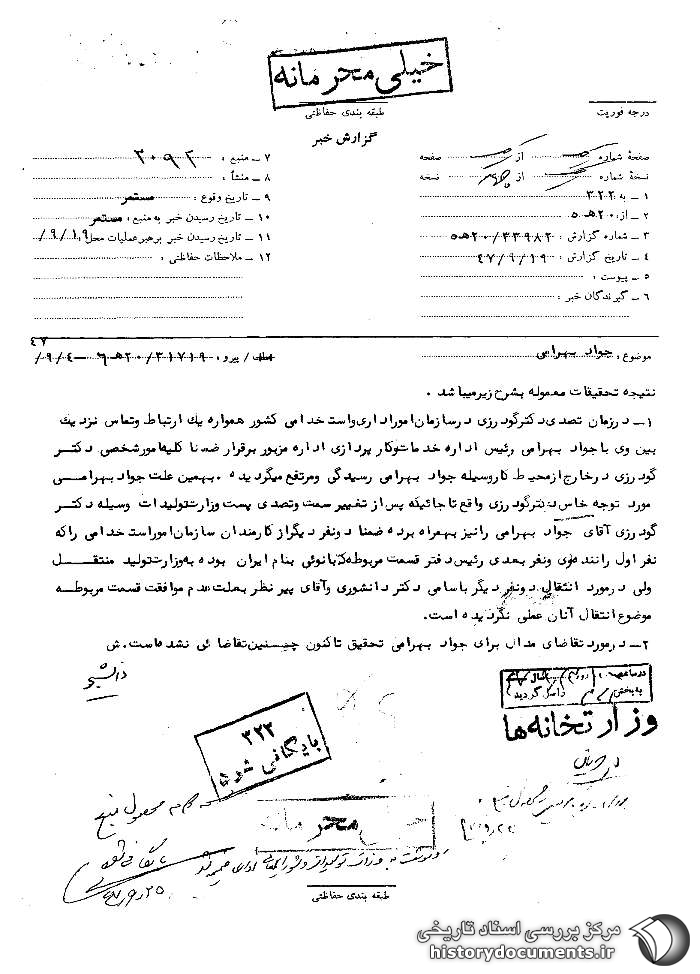 خیلی محرمانه
طبقه بندی حفاظتی
درجه فوریت
گزارش خبر
صفحهٔ شماره از صفحه
نسخهٔ شماره از نسخه
۱ ـ به ۳۲۲
۲ ـ از: ۲۰هـ۵
۳ ـ شماره گزارش : ۲۰/۳۳۹۸۲هـ۵
۴ ـ تاریخ گزارش : ۴۷/۹/۱۹
۵ ـ پیوست :
۶ ـ گیرندگان خبر :
۷ ـ منبع : ۳۰۹۲
۸ ـ منشأ :
۹ ـ تاریخ وقوع : مستمر
۱۰ ـ تاریخ رسیدن خبر به منبع : مستمر
۱۱ ـ تاریخ رسیدن خبر برهبر عملیات محل : ۹/۱۹/
۱۲ ـ ملاحظات حفاظتی :
موضوع : جواد بهرامی
/ پیرو : ۲۰/۳۱۷۱۹هـ۶ ـ ۹/۴/
۴۷
نتیجه تحقیقات معموله بشرح زیرمیباشد .
۱ـ درزمان تصدی دکترگودرزی درسازمان اموراداری واستخدامی کشور همواره یك ارتباط وتماس نزدیك
بین وی باجواد بهرامی رئیس اداره خدمات وکارپردازی اداره مزبور برقرار ضمنا کلیه امورشخصی دکتر
گودرزی درخارج ازمحیط کاروسیله جواد بهرامی رسیدگی ومرتفع میگردیده .بهمین علت جواد بهرامی
مورد توجه خاص دکترگودرزی واقع تاجائیکه پس از تغییر سمت وتصدی پست وزارت تولیدات وسیله دکتر
گودرزی آقای جواد بهرامی رانیز بهمراه برده ضمنا دونفر دیگراز کارمندان سازمان اموراستخدامی راکه
نفر اول راننده وی ونفر بعدی رئیس دفتر قسمت مربوطه که بانوئی بنام ایران بوده به وزارت تولید منتقل
ولی درمورد انتقال دونفر دیگر باسامی دکتر دانشوری وآقای پیر نظر بعلت عدم موافقت قسمت مربوطه
موضوع انتقال آنان عملی نگردیده است.
۲ـ درمورد تقاضای مدال برای جواد بهرامی تحقیق تاکنون چنین تقاضائی نشده است. ش
به بخش داخل گردید
وزارتخانه ها
۳۲۲
بایگانی شود
محرمانه
طبقه بندی حفاظتی
مرکز بررسی اسناد تاریخی
historydocuments.ir